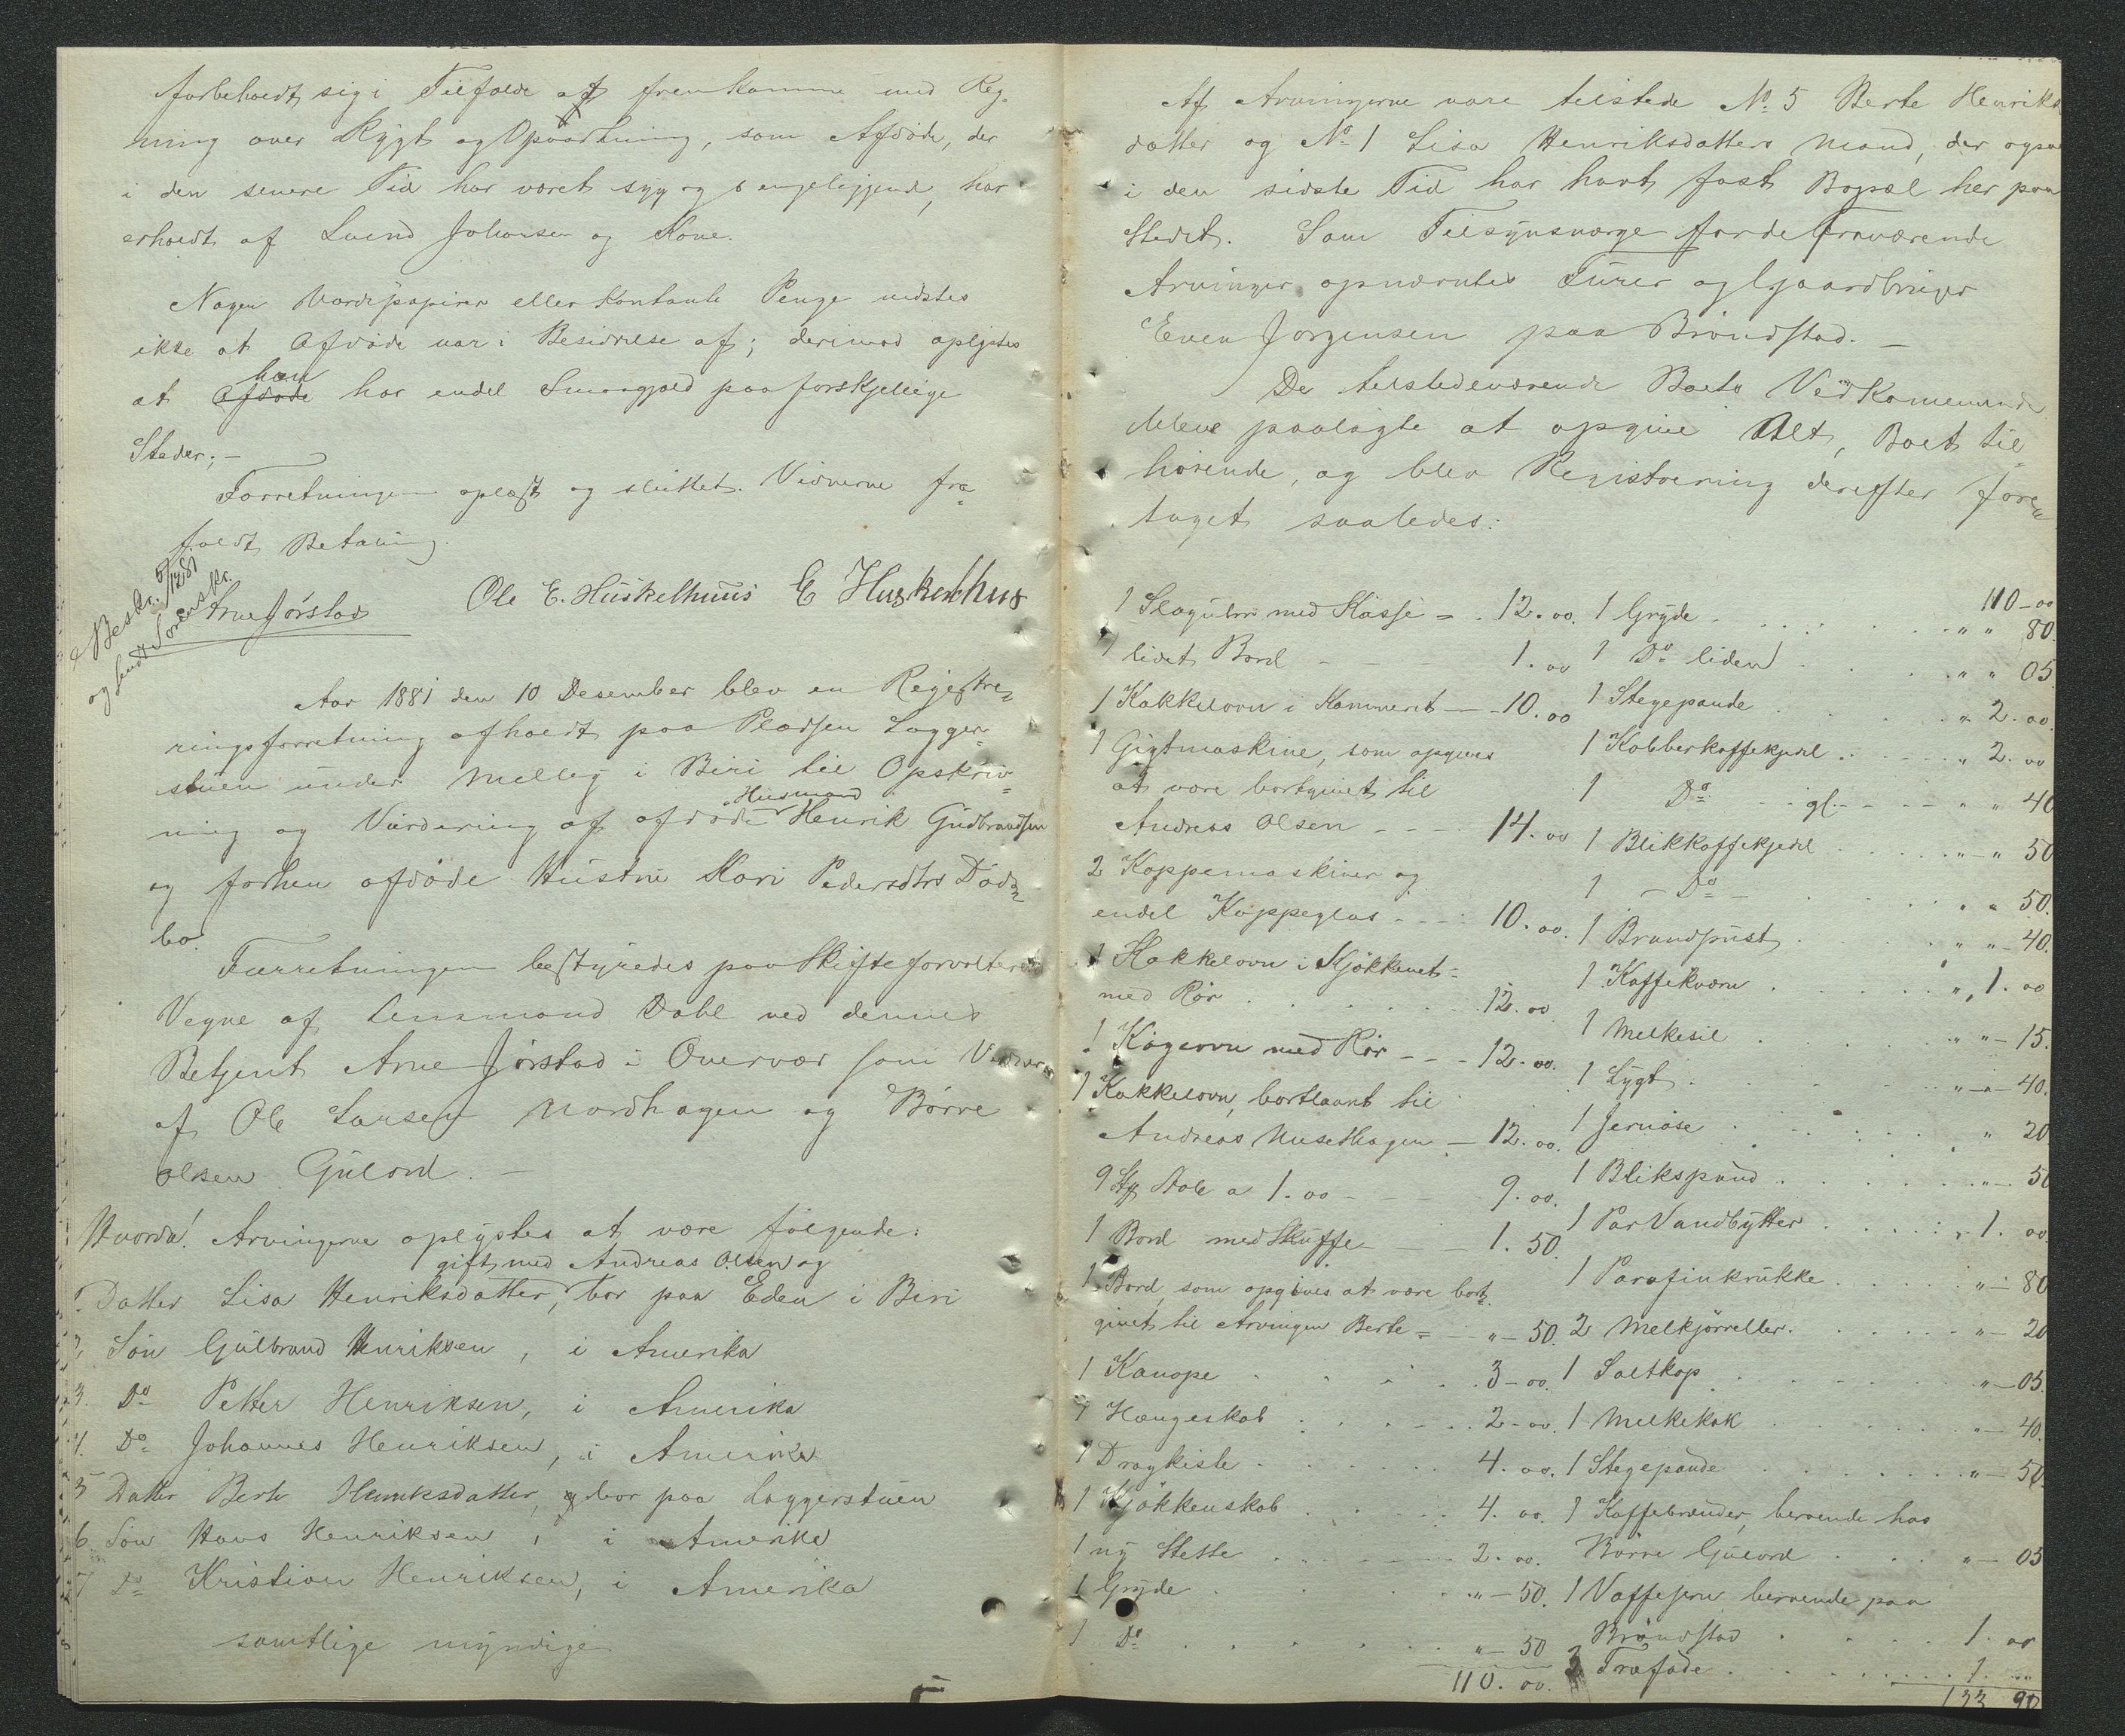 forbeholdt sig i Tilfælde at fremkomme med Reg-
ning over Rygt og Opvartning, som Afdøde, der
i den senere Tid har været syg og sengeliggende, har
erholdt af Lvend Johansen og Kone.
Nogen Værdipapirer eller Kontante Penge vidstes
ikke at Afdøde var i Besiddelse af; derimod oplystes
han
at Afdøde har endel Smaagjæld paa forskjellige
Steder; —
Forretningen oplæst og sluttet. Vidnerne fra-
faldt Betaling.
Beskr. 5/12 81
og sendt Sorenskr.
Arne Jørstad
Ole E. Huskelhuus E Huskelhus
Aar 1881 den 10 Desember blev en Registre-
ringsforretning afholdt paa Pladsen Lagger-
stuen under Melby i Biri til Opskriv-
Husmand
ning og Vurdering af afdøde Henrik Gudbrandsen
og forhen afdøde Hustru Kari Pedersdtrs Døds-
bo.
Forretningen bestyredes paa Skifteforvalterens
Vegne af Lensmand Dahl ved dennes
Betjent Arne Jørstad i Overvær som Vidner
af Ole Larsen Nordhagen og Børre
Olsen Gulord. —
Hvorda! Arvingerne oplystes at være følgende:
gift med Andreas Olsen og
1. Datter Lisa Henriksdatter, bor paa Eden i Biri
2 Søn Gulbrand Henriksen, i Amerika
3. Do Petter Henriksen, i Amerika
4. Do Johannes Henriksen, i Amerika
5 Datter Berte Henriksdatter, bor paa Laggerstuen
6 Søn Hans Henriksen, i Amerika
7 Do Kristian Henriksen, i Amerika
samtlige myndige
Af Arvingerne vare tilstede No 5 Berte Henriks
datter og No 1 Lisa Henriksdatters Mand, der ogsaa
i den sidste Tid har havt fast Bopæl her paa
Stedet. Som Tilsynsværge for de fraværende
Arvinger opnævntes Furer og Gaardbruger
Even Jørgensen paa Brøndstad. —
De tilstedeværende Boets Vedkommende
bleve paalagte at opgive Alt, Boet til-
hørende, og blev Registrering derefter fore-
taget saaledes:
1 Slaguhr med Kasse - 12. 00.
1 lidet Bord - - - 1. 00
1 Kakkelovn i Kammeret - 10. 00
1 Gigtmaskine, som opgives
at være bortgivet til
Andreas Olsen - - - 14. 00
2 Koppemaskiner og
endel Koppeglas - - - 10. 00.
1 Kakkelovn i Kjøkkenet
med Rør . . . 12. 00
1 Kogeovn med Rør - - - 12. 00.
1 Kakkelovn, bortlaant til
Andreas Musethagen - 12. 00.
9 Stk Stole a 1. 00 - - 9. 00.
1 Bord med Skuffe - 1. 50
1 Bord, som opgives at være bort-
givet til Arvingen Berte - " - 50
1 Kanope . . . 3 - 00.
1 Hængeskab . . . 2 - 00.
1 Dragkiste . . . 4. 00.
1 Kjøkkenskab . . . 4. 00.
1 ny Stette . . . 2. 00.
1 Gryde . . . " - 50.
1 Do . . . " - 50
110. 00.
110 - 00
1 Gryde . . . " " 80.
1 Do liden . . . " " 05
1 Stegepande . . . " 2. 00
1 Kobberkaffekjedel . . . " 2. 00
1 Do gl. - - - " " 40
1 Blikkaffekjedel . . . " - " 50
1 - Do - . . . " " 50.
1 Brandpust . . . " " - 40.
1 Kaffekværn . . . " 1. 00
1 Melkesil . . . " " - 15.
1 Lygt . . . " - " - 40.
1 Jernøse . . . " 20
1 Blikspand . . . " - 50
1 Par Vandbytter . . . " 1. 00.
1 Parafinkrukke . . . " - 80
2 Melkjørreller . . . " - 20
1 Saltkop . . . " - 05.
1 Melkekak . . . " - 40.
1 Stegepande . . . " - 50.
1 Kaffebrænder, beroende hos
Børre Gulord . . . " - 05
1 Vaffeljern beroende paa
Brøndstad . . . 1. 00
3 Træfade . . . 1. "
133 90